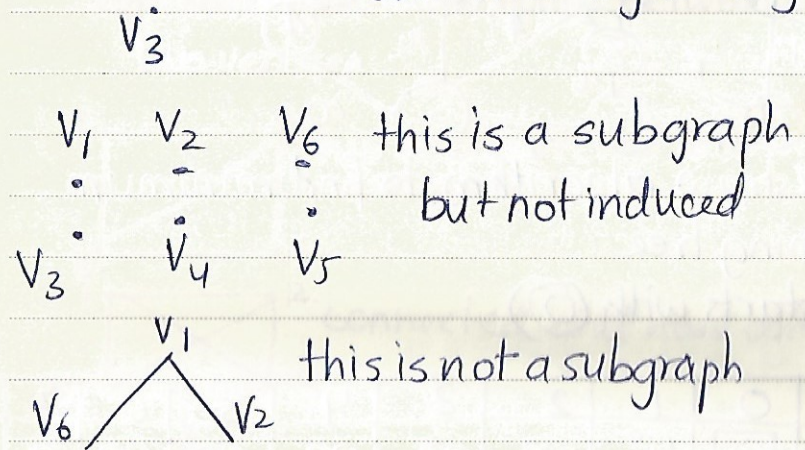 V3
V1 V2 V6 this is a subgraph
but not induced
V3 V4 V5
V1
this is not a subgraph
V6 V2